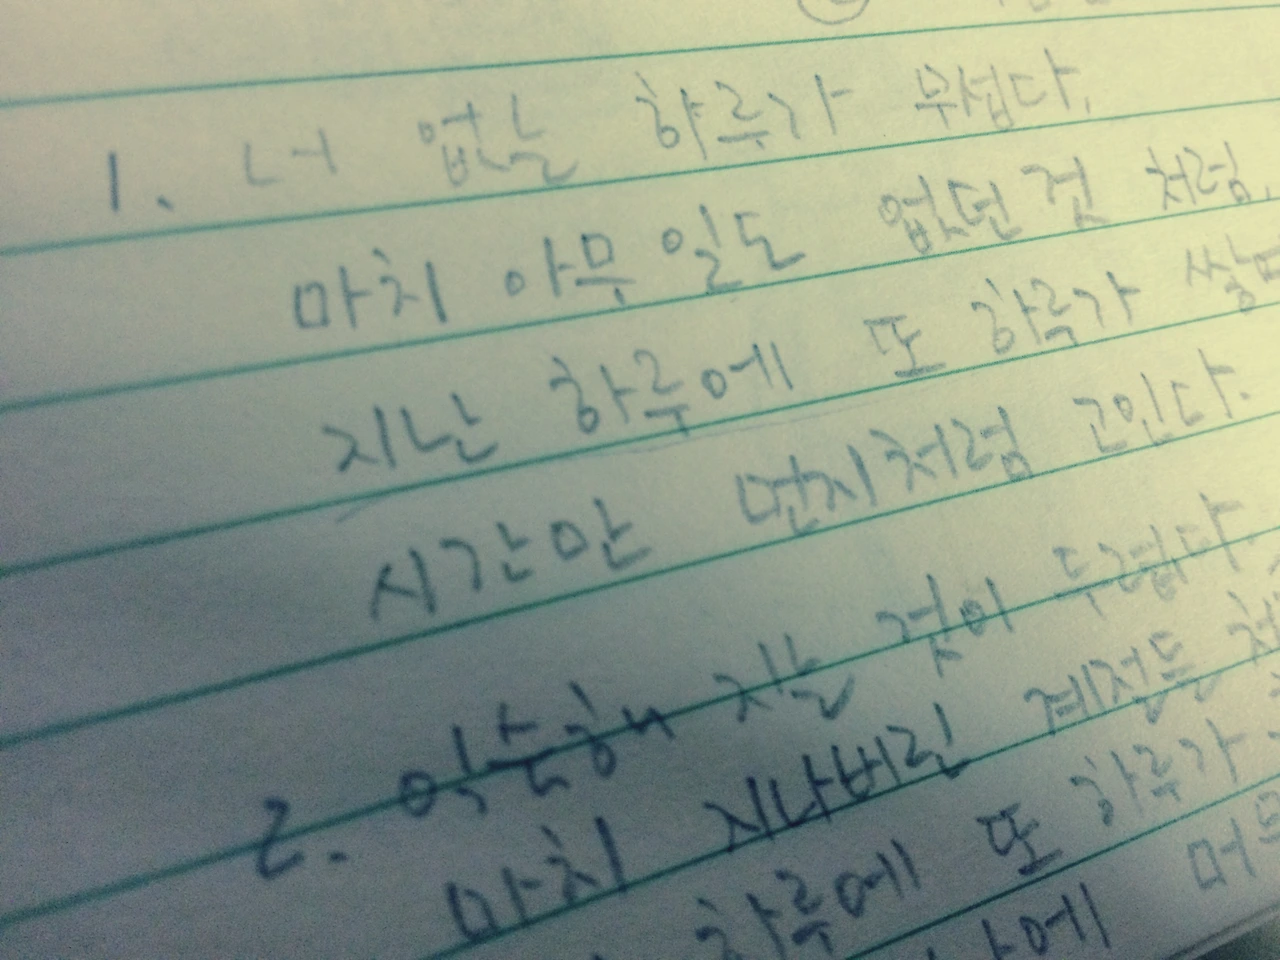 1. 너 없는 하루가 무섭다.
마치 아무 일도 없던 것 처럼.
지난 하루에 또 하루가
시간만 먼지처럼 고인다.
2. 익숙해 지는 것이 두렵다.
마치 지나버린 계절은
하루에 또 하루가